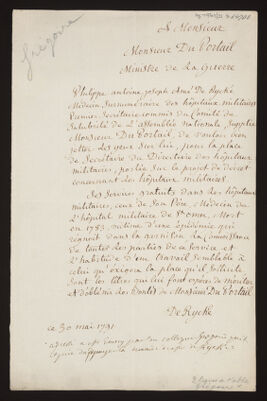 Grégoire
A Monsieur
Monsieur Du Portail
Ministre de La Guerre
Philippe antoine joseph Amé De Rycké
Médecin Surnuméraire des hôpitaux militaires
Premier Secrétaire commis du Comité de
Salubrité de L'assemblée nationale, Supplie
Monsieur Du Portail, de vouloir bien
jetter les yeux Sur lui, pour la place
de Secrétaire du Directoire des hôpitaux
militaires, portée Sur le projet de décret
concernant les hôpitaux militaires.
Ses Services gratuits dans les hôpitaux
militaires, ceux de Son Père, Médecin de
L'hôpital militaire de St omer, Mort
en 1783, victime d'une épidémie qui
régnoit dans la garnison, La connoissance
de toutes les parties de ce Service et
L'habitude d'un travail Semblable à
celui qu'exigera la place qu'il Sollicite
Sont les titres qui lui font espérer de mériter
et d'obtenir les Bontés de Monsieur Du Portail
De Ryckè
ce 30 mai 1791